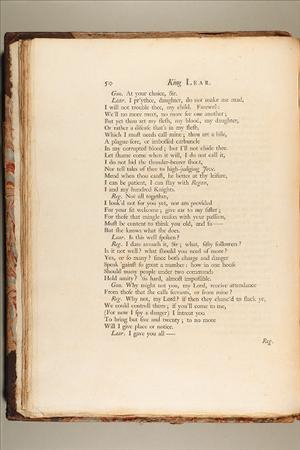 50 King LEAR.
Gon. At your choice, Sir.
Lear. I pr'ythee, daughter, do not make me mad,
I will not trouble thee, my child. Farewel:
We'll no more meet, no more see one another;
But yet thou art my flesh, my blood, my daughter,
Or rather a disease that's in my flesh,
Which I must needs call mine; thou art a bile,
A plague-sore, or imbossed carbuncle
In my corrupted blood; but I'll not chide thee.
Let shame come when it will, I do not call it,
I do not bid the thunder-bearer shoot,
Nor tell tales of thee to high-judging Jove.
Mend when thou canst, be better at thy leisure,
I can be patient, I can stay with Regan,
I and my hundred Knights.
Reg. Not all together,
I look'd not for you yet, nor am provided
For your fit welcome; give ear to my sister;
For those that mingle reason with your passion,
Must be content to think you old, and so——
But she knows what she does.
Lear. Is this well spoken?
Reg. I dare avouch it, Sir; what, fifty followers?
Is it not well? what should you need of more?
Yes, or so many? since both charge and danger
Speak 'gainst so great a number: how in one house
Should many people under two commands
Hold amity? 'tis hard, almost impossible.
Gon. Why might not you, my Lord, receive attendance
From those that she calls servants, or from mine?
Reg. Why not, my Lord? if then they chanc'd to slack ye,
We could controll them; if you'll come to me,
(For now I spy a danger) I intreat you
To bring but five and twenty; to no more
Will I give place or notice.
Lear. I gave you all ——
Reg.